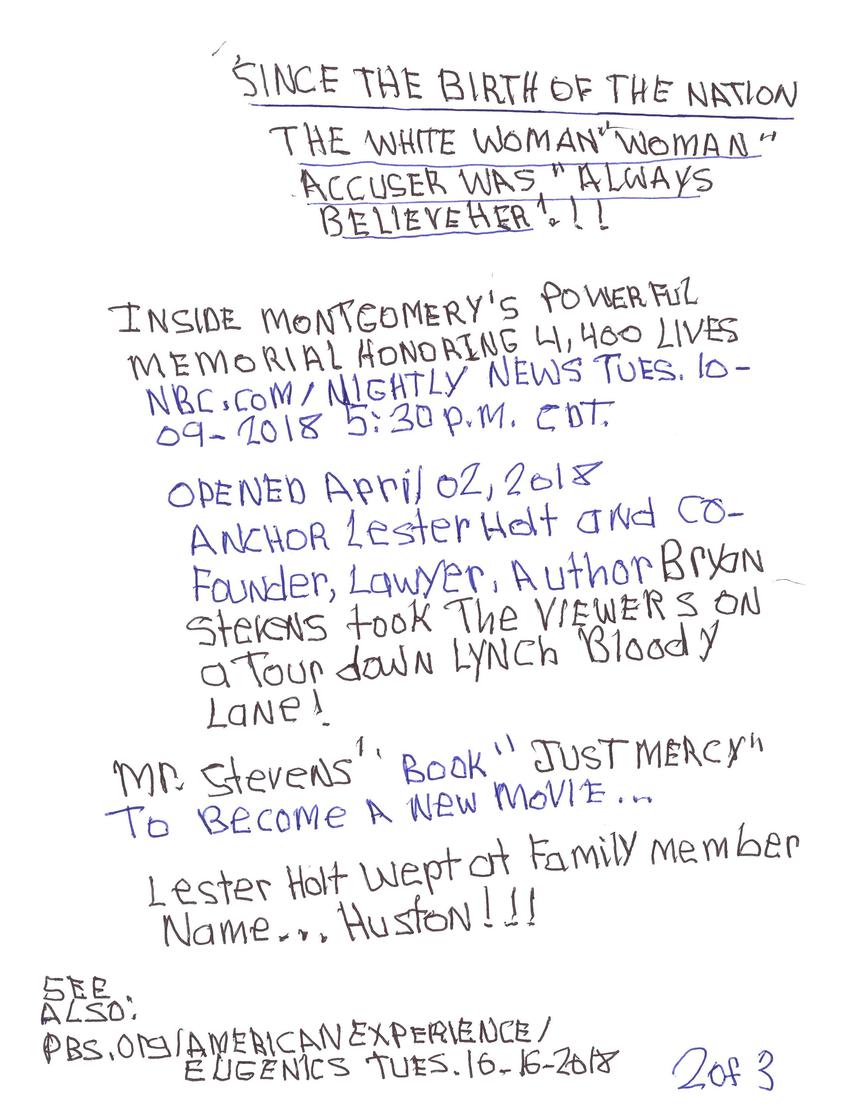 'SINCE THE BIRTH OF THE NATION
THE WHITE WOMAN "WOMAN"
ACCUSER WAS "ALWAYS
BELIEVEHER'!!!
INSIDE MONTGOMERY'S POWERFUL
MEMORIAL HONORING 4,400 LIVES
NBC.COM/NIGHTLY NEWS TUES. 10-
09-2018 5:30 P.M. CDT.
OPENED April 02, 2018
ANCHOR Lester Holt and CO-
Founder, Lawyer, Author Bryan
Stevens took The VIEWERS ON
a Tour down LYNCh Bloody
Lane!
Mr. Stevens' Book "JUST MERCY"
To Become A New MOVIE...
Lester Holt Wept at Family member
Name... Huston!!!
SEE
ALSO:
PBS.Org/AMERICAN EXPERIENCE/
EUGENICS TUES. 10-16-2018
2 of 3